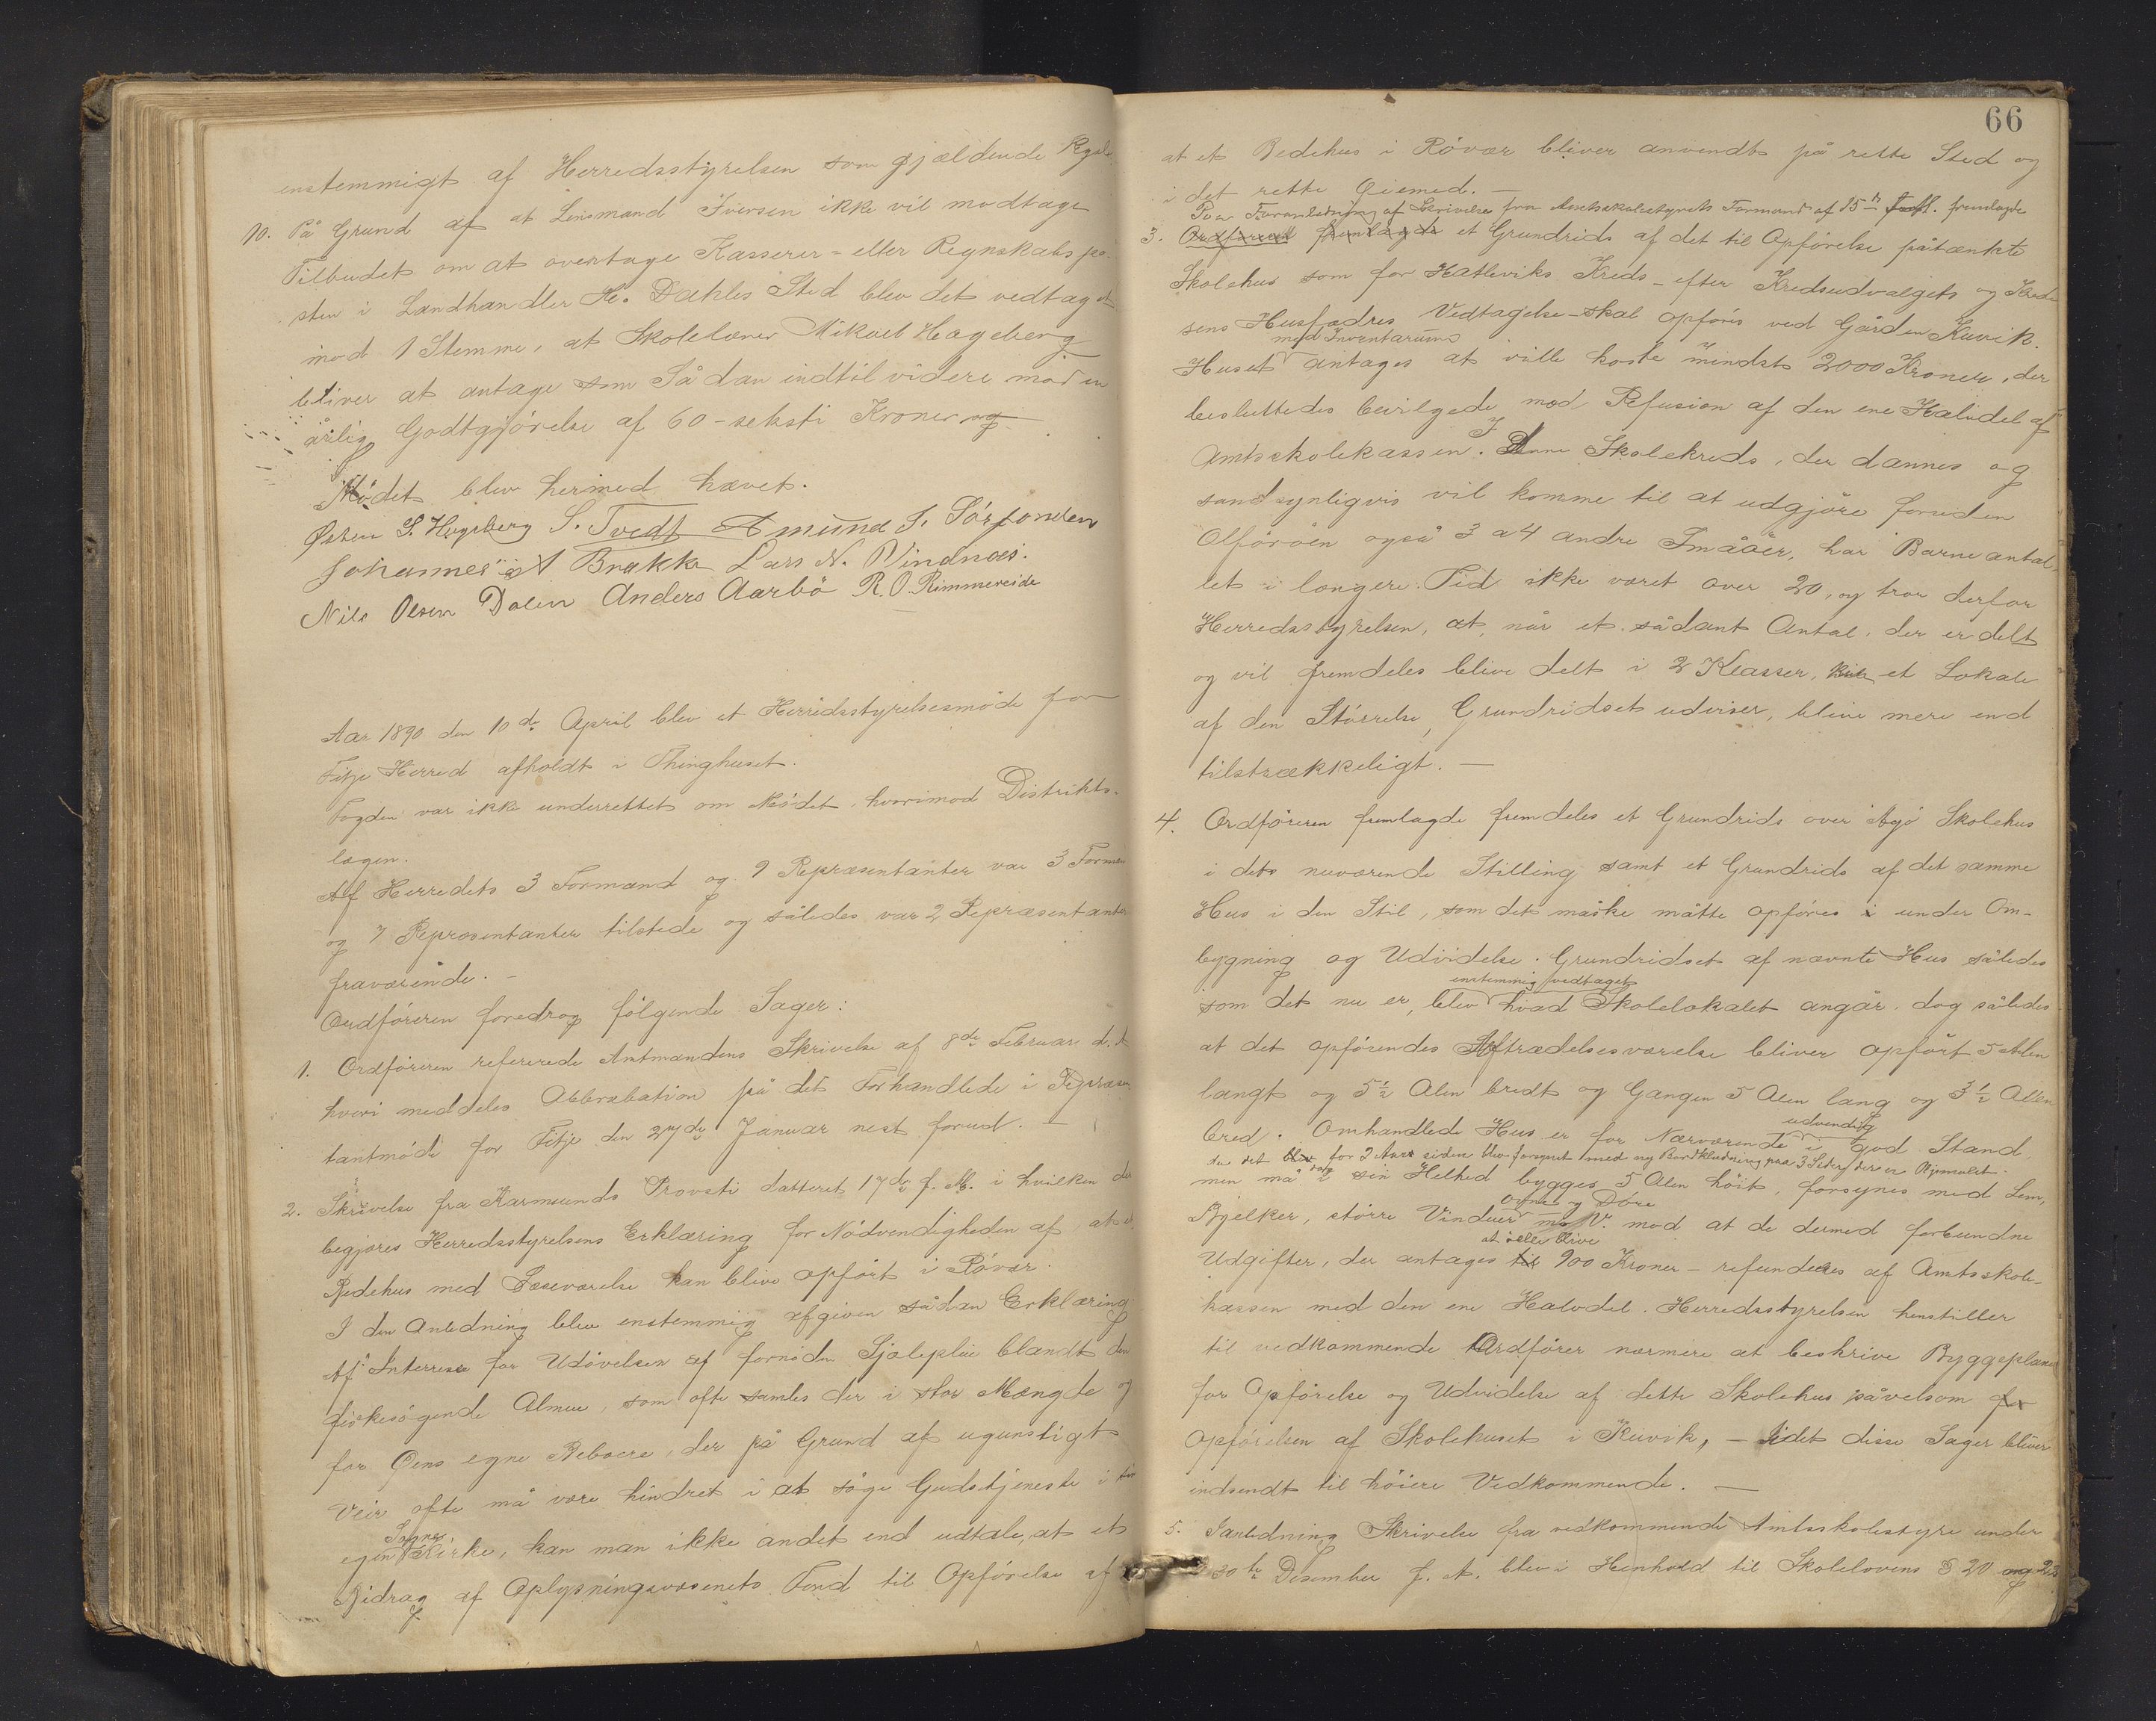 enstemmigt af Herredsstyrelsen som gjældende
10. På Grund af at Linsmand Iversen ikke vil modtage
Tilbudet om at overtage Kasserer- eller Regnskabs po-
sten i Landhandler Dahles Sted blev det vedtaget
mod 1 Stemme, at Skolelærer Mikael Hageberg
bliver at antage som Sådan indtil videre mod en
årlig Godtgjørelse af 60 - seksti Kroner og
Mødet blev hermed hævet.
Østen S. Hageberg S. Tvedt Amund J. Sørfonden
Johannes A Brakke Lars N. Vindnæs.
Nils Olsen Dalen Anders Aarbö R. O. Rimmereide
Aar 1890 den 10de April blev et Herredsstyrelsesmøde for
Fitje Herred afholdt i Thinghuset.
Fogden var ikke underrettet om Mødet, hvorimod Distrikts-
lægen.
Af Herredets 3 Formænd og 9 Repræsentanter var 3 Formæn
og 7 Repræsentanter tilstede og således var 2 Repræsentanter
fraværende. -
Ordføreren foredrog følgende Sager:
1. Ordføreren refererede Amtmandens Skrivelse af 8de Februar d. A
hvori meddeles Abbrabation på det Forhandlede i Repræsen
tantmøde for Fitje den 27de Januar nest forud. -
2. Skrivelse fra Karmsunds Provsti datteret 17de f. M. i hvilken der
begjæres Herredsstyrelsens Erklæring for Nødvendigheden af, at et
Bedehus med Læseværelse kan blive opført i Røvær.
I den Anledning blev enstemmig afgiven sådan Erklæring:
Af Interesse for Udøvelsen af fornøden Sjælepleie blandt den
fiskesøgende Almue, som ofte samles der i stor Mængde og
for Øens egne Beboere, der på Grund af ugunstigt
Veir ofte må være hindret i at søge Gudstjeneste i sin
Sogne
egen Kirke, kan man ikke andet end udtale, at et
Bidrag af Oplysningsvæsenets Fond til Opførelse af
66
at et Bedehus i Røvær bliver anvendt på rette Sted og
i det rette Øiemed. -
Paa Foranledning af Skrivelse fra Amtsskolestyrets Formand af 15de f. fremlagde
3. Ordføreren fremlagde et Grundrids af det til Opførelse påtænkte
Skolehus som for Hatleviks Kreds - efter Kredsudvalgets og Kred-
sens Husfædres Vedtagelse - skal opføres ved Gården Kuvik.
med Inventarium
Huset antages at ville koste mindst 2000 Kroner, der
besluttedes bevilgede mod Refusion af den ene Halvdel af
Amtsskolekassen. I denne Skolekreds, der dannes og
sandsynligvis vil komme til at udgjøre foruden
Olførøen også 3 a 4 andre Småøer, har Barneantal-
let i længere Tid ikke været over 20, og tror derfor
Herredsstyrelsen, at, når et sådant Antal, der er delt
og vil fremdeles blive delt i 2 Klasser, et Lokale
af den Størrelse, Grundridset udviser, blive mere end
tilstrækkeligt. -
4. Ordføreren fremlagde fremdeles et Grundrids over Agø Skolehus
i dets nuværende Stilling samt et Grundrids af det samme
Hus i den Stil, som det måske måtte opføres i under Om-
bygning og Udvidelse. Grundridset af nævnte Hus således
enstemmig vedtaget
som det nu er, blev hvad Skolelokalet angår, dog således
at det opførendes Aftrædelsesværelse bliver opført 5 Alen
langt og 5½ Alen bredt og Gangen 5 Alen lang og 3½ Alen
bred. Omhandlede Hus er for Nærværende i udvendig god Stand,
da det blev for 2 Aar siden blev forsynet med ny Bordklædning paa 3 Sider, der er Oljemalet.
men må dog i sin Helhed bygges 5 Alen høit, forsynes med Lem,
ovne og Døre
Bjelker, større Vinduer m. V. mod at de dermed forbundne
at ville blive
Udgifter, der antages til 900 Kroner - refunderes af Amtsskole-
kassen med den ene Halvdel. Herredsstyrelsen henstiller
til vedkommende Ordfører nærmere at beskrive Byggeplanen
for Opførelse og Udvidelse af dette Skolehus såvelsom for
Opførelsen af Skolehuset i Kuvik, - idet disse Sager bliver
indsendt til høiere Vedkommende. -
5. I anledning Skrivelse fra vedkommende Amtsskolestyre under
30te Desember f. A. blev i Henhold til Skolelovens § 20 og